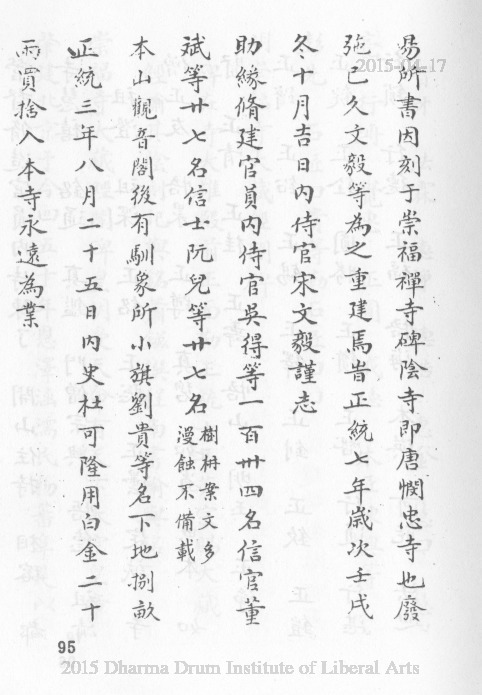 易所書因刻于崇福禪寺碑陰寺即唐憫忠寺也廢
弛已久文毅等為之重建焉旹正統七年歲次壬戌
冬十月吉日內侍官宋文毅謹志
助緣脩建官員內侍官吳得等一百卅四名信官董
斌等廿七名信士阮兒等廿七名樹枬案文多漫蝕不備載
本山觀音閣後有馴象所小旗劉貴等名下地捌畝
正統三年八月二十五日內史杜可隆用白金二十
兩買捨入本寺永遠為業
95
2015-04-17
2015 Dharma Drum Institute of Liberal Arts